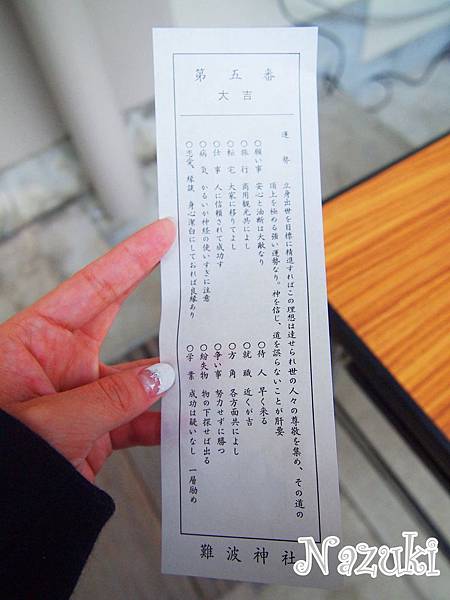 第五番
大吉
運勢 立身出世を目標に精進すればこの理想は達せられ世の人々の尊敬を集め、その道の
頂上を極める強い運勢なり。神を信じ、道を誤らないことが肝要
○願い事 安心と油断は大敵なり
○旅行 商用観光共によし
○転宅 大家に移りてよし
○仕事 人に信頼されて成功す
○病気 かるいが神経の使いすぎに注意
○恋愛、縁談 身心潔白にしておれば良縁あり
○待人 早く来る
○就職 近くが吉
○方角 各方面共によし
○争い事 努力せずに勝つ
○紛失物 物の下探せば出る
○学業 成功は疑いなし 一層励め
難波神社
Nazuki